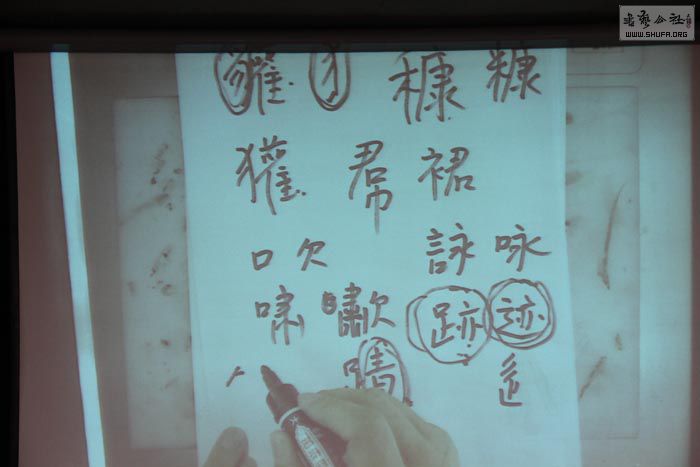 書藝公社
WWW.SHUFA.ORG
貛 犭 穅 糠
獾 帬 裙
吹 詠 咏
嘯 歗 跡 迹
蹟 辶